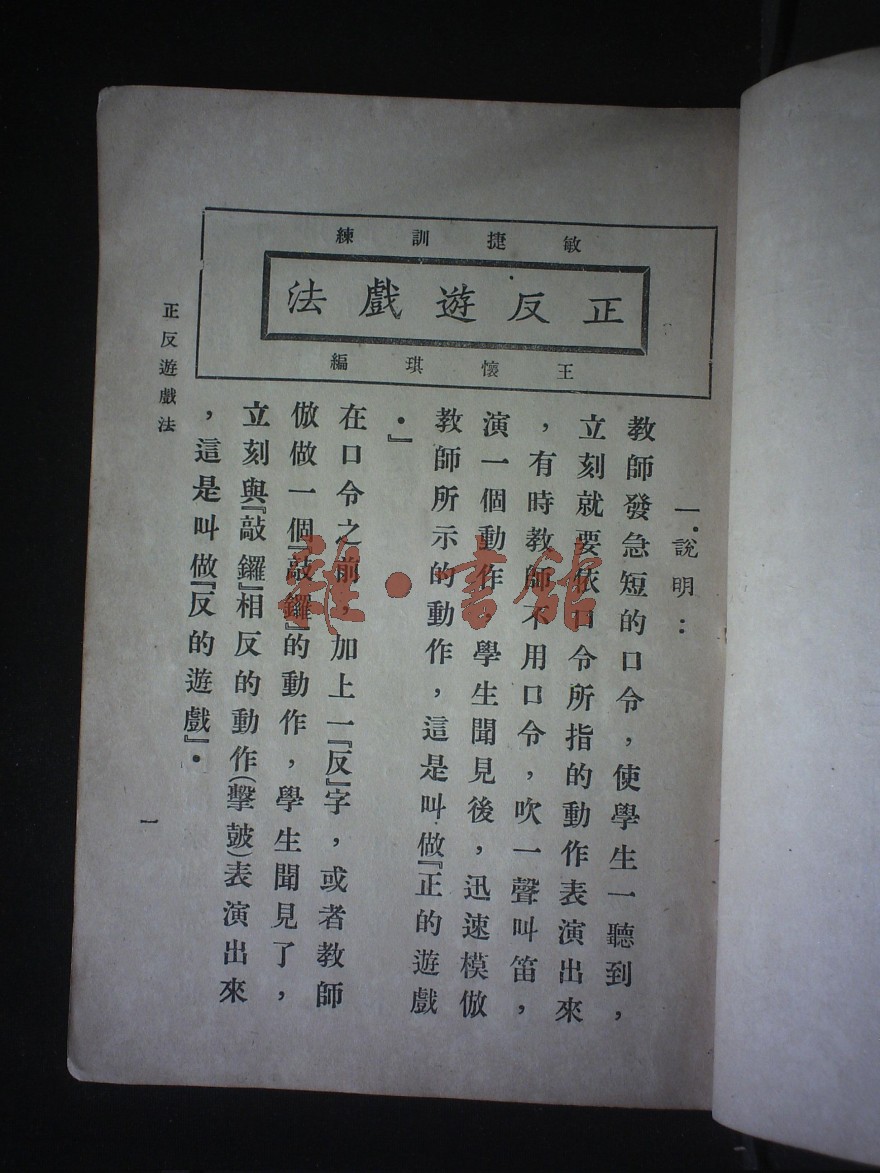 敏捷訓練
正反遊戲法
王懷琪編
一.說明：
教師發急短的口令，使學生一聽到，
立刻就要依口令所指的動作表演出來
，有時教師不用口令，吹一聲叫笛，
演一個動作，學生聞見後，迅速模倣
教師所示的動作，這是叫做『正的遊戲
』．
在口令之前，加上一『反』字，或者教師
倣做一個『敲鑼』的動作，學生聞見了，
立刻與『敲鑼』相反的動作(擊皷)表演出來
，這是叫做『反的遊戲』．
正反遊戲法
一
雜·書館